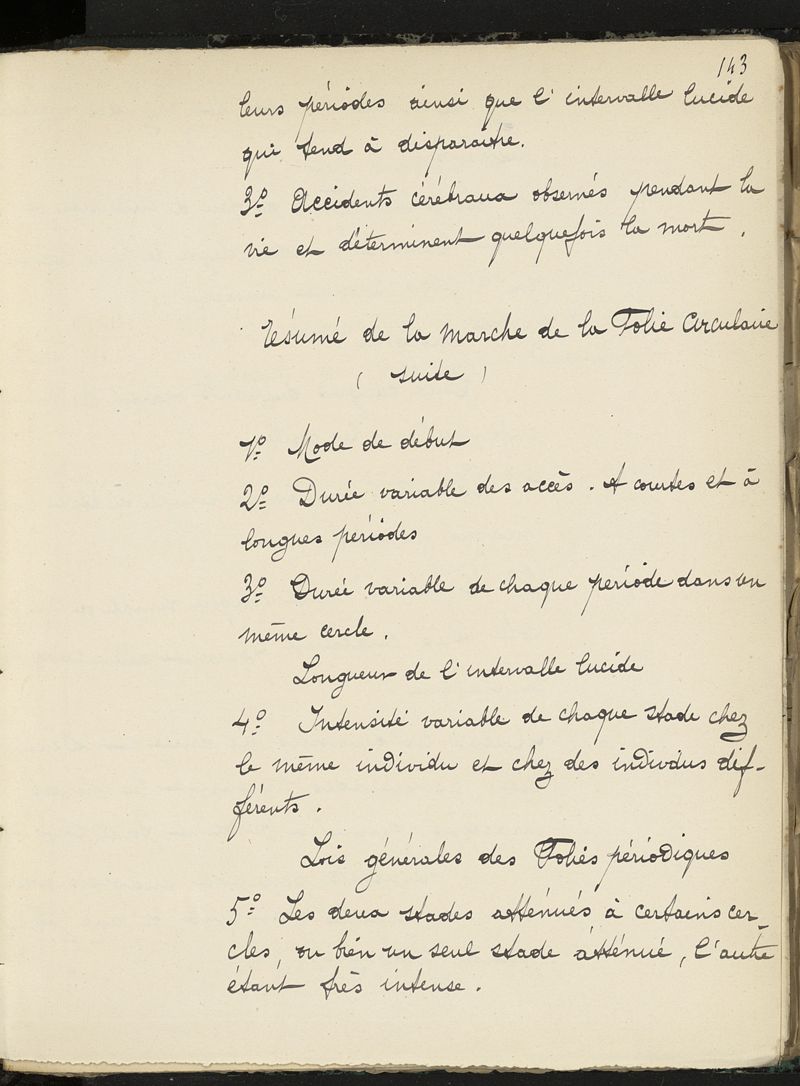 143
leurs périodes ainsi que l'intervalle lucide
qui tend à disparaitre.
3º Accidents cérébraux observés pendant la
vie et déterminent quelquefois la mort.
Résumé de la marche de la Folie Circulaire
(suite)
1º Mode de début
2º Durée variable des accès. A courtes et à
longues périodes
3º Durée variable de chaque période dans un
même cercle.
Longueur de l'intervalle lucide
4º Intensité variable de chaque stade chez
le même individu et chez des individus dif-
férents.
Lois générales des Folies périodiques
5º Les deux stades atténués à certains cer-
cles, ou bien un seul stade atténué, l'autre
étant très intense.